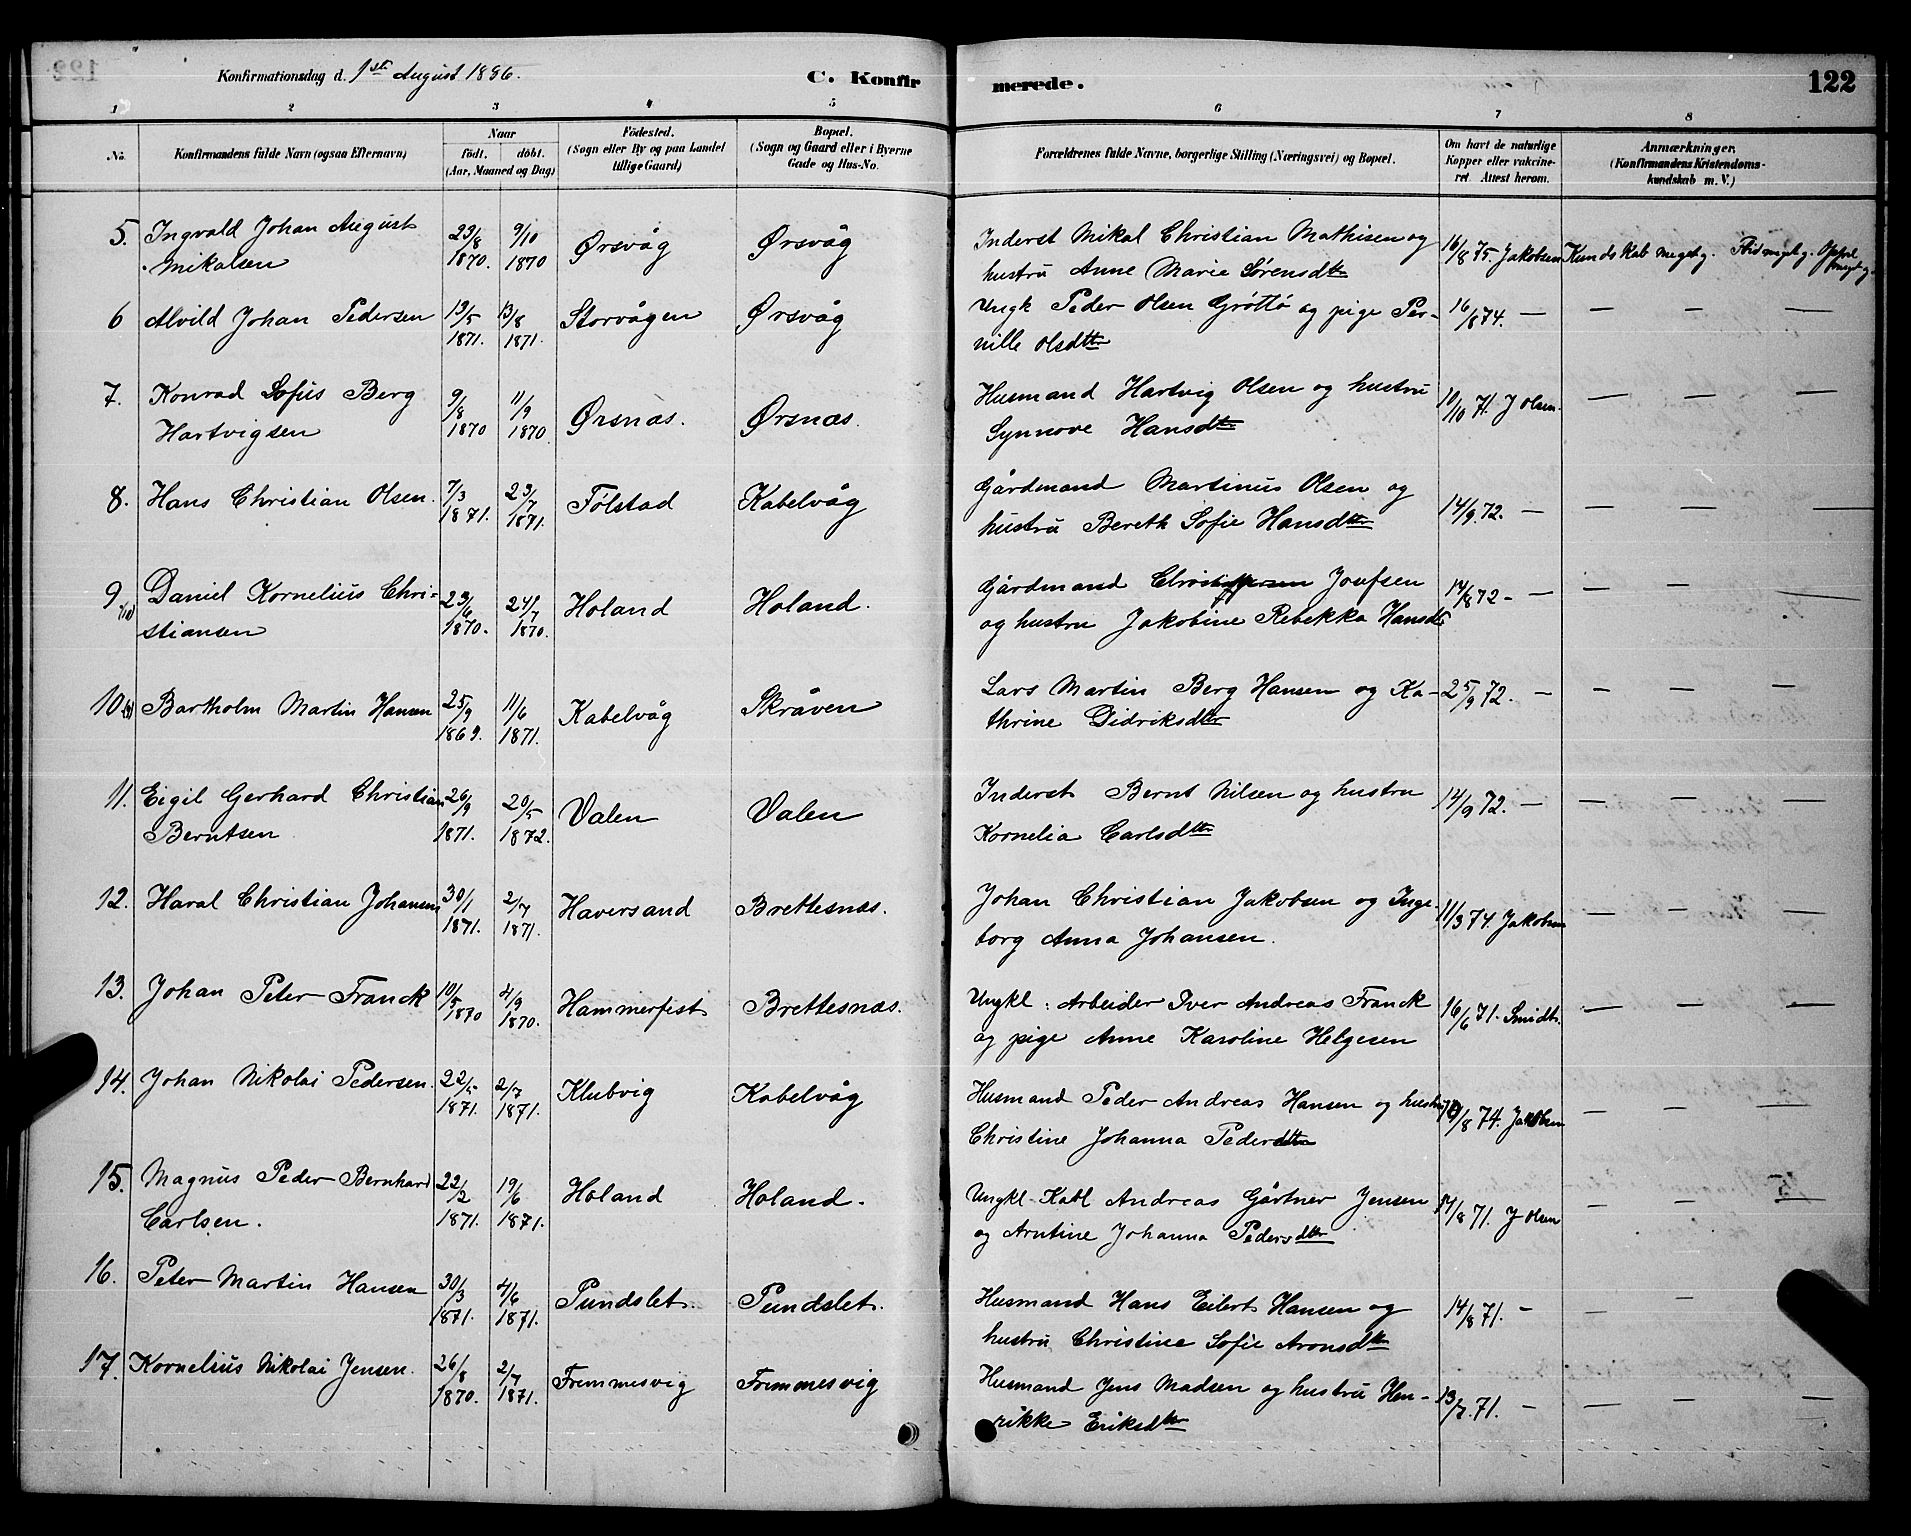 Konfirmationsdag d. 1ste August 1886.
C. Konfirmerede.
122
1 2 3 4 5 6 7 8
No. Konfirmandens fulde Navn (ogsaa Efternavn) Naar født. døbt. (Aar, Maaned og Dag) Fødested. (Sogn eller By og paa Landet tillige Gaard) Bopæl. (Sogn og Gaard eller i Byerne Gade og Hus-No. Forældrenes fulde Navne, borgerlige Stilling (Næringsvei) og Bopæl. Om havt de naturlige Kopper eller vakcineret. Attest herom. Anmærkninger. (Konfirmandens Kristendomskundskab m. V.)
5. Ingvald Johan August Mikalsen 23/8 1870. 9/10 1870 Ørsvåg Ørsvåg Inderst Mikal Christian Mathisen og
hustru Anne Marie Sørensdtr 16/8 75. Jakobsen Kundskab meget g. Flid meget g.
6 Alvild Johan Pedersen 13/5 1871. 13/8 1871. Storvågen Ørsvåg Ungk Peder Olsen Gróttó og pige Per-
nille Olsdtr 16/8 74. — — — —
7. Konrad Sofus Berg Hartvigsen 9/8 1870 11/9 1870. Ørsnæs. Ørsnæs. Husmand Hartvig Olsen og hustru
Synnove Hansdtr 10/10 71. J Olsen. — — —
8. Hans Christian Olsen. 7/3 1871. 23/7 1871. Følstad Kabelvåg Gårdmand Martinus Olsen og
hustru Bereth Sofie Hansdtr 14/9. 72. — — — —
9 Daniel Kornelius Chri=
stiansen 23/6 1870. 24/7 1870. Holand Holand. Gårdmand Josefsen
og hustru Jakobine Rebekka Hansdtr 14/8 72 - — — — —
10 Bartholm Martin Hansen 25/9 1869. 11/6 1871. Kabelvåg Skråven Lars Martin Berg Hansen og Ka-
thrine Didriksdtr 25/9 72. — — — —
11. Eigil Gerhard Christian
Berntsen 26/9 1871. 20/5 1872. Valen Valen Inderst Bernt Nilsen og hustru
Kornelia Carlsdtr 14/9 72. — — — —
12. Haral Christian Johansen 30/1 1871. 2/7 1871. Haversand Brettesnæs. Johan Christian Jakobsen og Inge-
borg Anna Johansen. 11/3 74. Jakobsen — — —
13. Johan Peter Franck 10/5 1870 4/9 1870. Hammerfest Brettesnæs. Ungkl: Arbeider Iver Andreas Franck
og pige Anne Karoline Helgesen 16/6 71. Smidt. — — —
14. Johan Nikolai Pedersen. 22/5 1871. 2/7 1871. Klubvig Kabelvåg Husmand Peder Andreas Hansen og hustru
Christine Johanna Pedersdtr /8 74. Jakobsen — — —
15. Magnus Peder Bernhard
Carlsen. 22/2 1871. 19/6 1871. Holand Holand. Ungkl. Karl Andreas Gårtner Jensen
og Arntine Johanna Pedersdtr 14/8 71. J Olsen — — —
16. Peter Martin Hansen 30/3 1871. 4/6 1871. Pundslet. Pundslet. Husmand Hans Eilert Hansen og
hustru Christine Sofie Aronsdtr 14/8 71. — — —
17. Kornelius Nikolai Jensen. 26/8 1870. 2/7 1871. Fremmesvig Fremmesvig Husmand Jens Madsen og hustru Hen-
rikke Eriksdtr 13/7. 71. — — — —